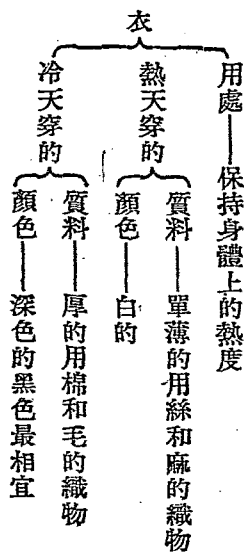 衣
用處——保持身體上的熱度
熱天穿的
質料——單薄的用絲和麻的織物
顏色——白的
冷天穿的
質料——厚的用棉和毛的織物
顏色——深色的黑色最相宜